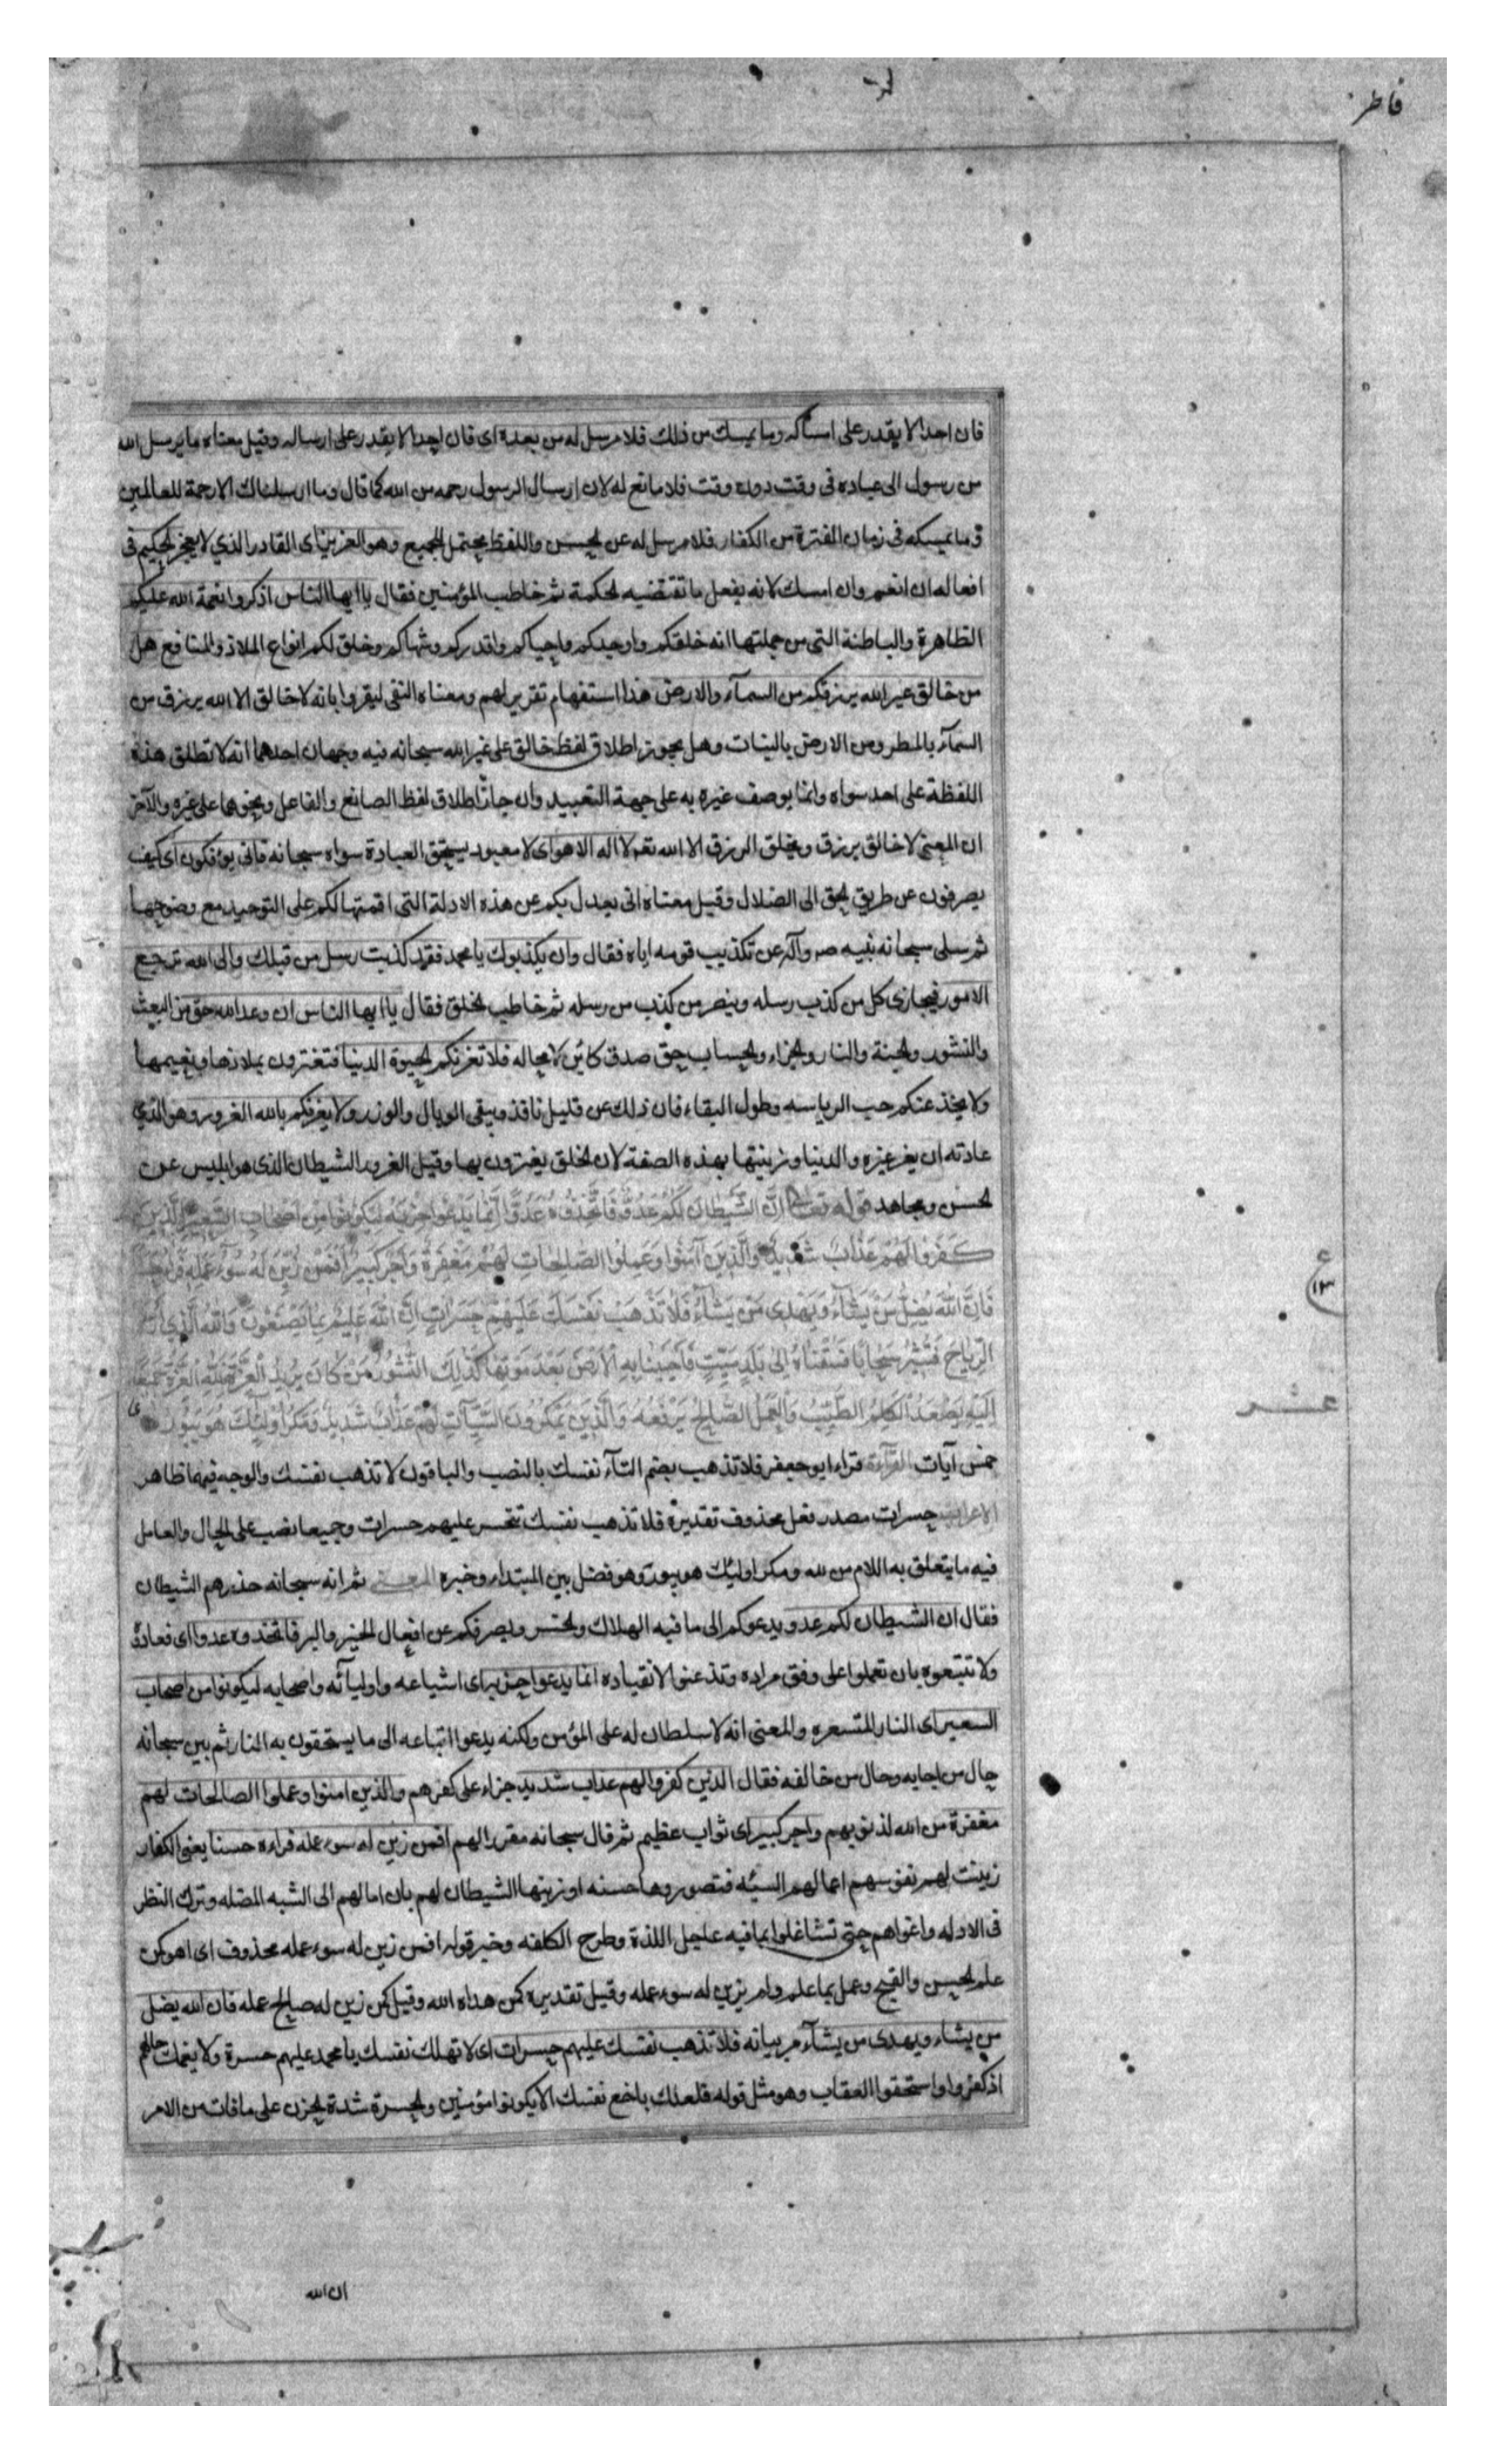 فاطر
فان احدا لا يقدر على امساكه وما يمسك من ذلك فلا مرسل له من بعده اى فان احدا لا يقدر على ارساله وقيل معناه ما يرسل الله
من رسول الى عباده فى وقت دون وقت فلا مانع له لان ارسال الرسول رحمه من الله كما قال وما ارسلناك الا رحمة للعالمين
و ما يمسكه فى زمان الفترة من الكفار فلا مرسل له عن الحسن واللفظ يحتمل الجميع وهو العزيز اى القادر الذي لا يعجز الحكيم فى
افعاله ان انعم وان امسك لانه يفعل ما تقتضيه الحكمة ثم خاطب المؤمنين فقال يا ايها الناس اذكروا نعمة الله عليكم
الظاهرة والباطنة التى من جملتها انه خلقكم واوجدكم واحياكم واقدركم وشهاكم وخلق لكم انواع الملاذ والمنافع هل
من خالق غير الله يرزقكم من السمآء والارض هذا استفهام تقرير لهم ومعناه النفى ليقروا بانه لا خالق الا الله يرزق من
السمآء بالمطر ومن الارض بالنبات وهل يجوز اطلاق لفظ خالق على غير الله سبحانه فيه وجهان احدهما انه لا تطلق هذه
اللفظة على احد سواه وانما يوصف غيره به على جهة التقييد وان جاز اطلاق لفظ الصانع والفاعل ونحوهما على غيره والآخر
ان المعنى لا خالق يرزق ويخلق الرزق الا الله تعم لا اله الا هو اى لا معبود يستحق العبادة سواه سبحانه فانى يؤفكون اى كيف
يصرفون عن طريق الحق الى الضلال وقيل معناه انى يعدل بكم عن هذه الادلة التى اقمتها لكم على التوحيد مع وضوحها
ثم سلى سبحانه نبيه صم وآله عن تكذيب قومه اياه فقال وان يكذبوك يا محمد فقد كذبت رسل من قبلك والى الله ترجع
الامور فيجازى كل من كذب رسله وينصر من كذب من رسله ثم خاطب الخلق فقال يا ايها الناس ان وعد الله حق من البعث
والنشور والجنة والنار والجزاء والحساب حق صدق كائن لا محاله فلا تغرنكم الحيوة الدنيا فتغترون بملاذها ونعيمها
ولا يخدعنكم حب الرياسه وطول البقاء فان ذلك عن قليل نافذ ويبقى الوبال والوزر ولا يغرنكم بالله الغرور وهو الذي
عادته ان يغر غيره والدنيا وزينتها بهذه الصفة لان الخلق يغترون بها وقيل الغرور الشيطان الذى هو ابليس عن
الحسن ومجاهد قوله تعالى اِنَّ الشَّيْطانَ لَكُمْ عَدُوٌّ فَاتَّخِذُوهُ عَدُوًّا اِنَّما يَدْعُوا حِزْبَهُ لِيَكُونُوا مِنْ اَصْحابِ السَّعِيرِ الَّذِينَ
كَفَرُوا لَهُمْ عَذابٌ شَدِيدٌ وَالَّذِينَ آمَنُوا وَعَمِلُوا الصّالِحاتِ لَهُمْ مَغْفِرَةٌ وَاَجْرٌ كَبِيرٌ اَفَمَنْ زُيِّنَ لَهُ سُوءُ عَمَلِهِ فَرَاهُ حَسَنًا
فَاِنَّ اللهَ يُضِلُّ مَنْ يَشآءُ وَيَهْدِى مَنْ يَشآءُ فَلا تَذْهَبْ نَفْسُكَ عَلَيْهِمْ حَسَراتٍ اِنَّ اللهَ عَلِيمٌ بِما يَصْنَعُونَ وَاللهُ الَّذِى اَرْسَلَ
الرِّياحَ فَتُثِيرُ سَحابًا فَسُقْناهُ اِلى بَلَدٍ مَيِّتٍ فَاَحْيَيْنا بِهِ الْاَرْضَ بَعْدَ مَوْتِها كَذلِكَ النُّشُورُ مَنْ كانَ يُرِيدُ الْعِزَّةَ فَلِلّهِ الْعِزَّةُ جَمِيعًا
اِلَيْهِ يَصْعَدُ الْكَلِمُ الطَّيِّبُ وَالْعَمَلُ الصّالِحُ يَرْفَعُهُ وَالَّذِينَ يَمْكُرُونَ السَّيِّآتِ لَهُمْ عَذابٌ شَدِيدٌ وَمَكْرُ اُولئِكَ هُوَ يَبُورُ
خمس آيات القرآءة قراء ابو جعفر فلا تذهب بضم التآء نفسك بالنصب والباقون لا تذهب نفسك والوجه فيهما ظاهر
الاعراب حسرات مصدر فعل محذوف تقديره فلا تذهب نفسك تتحسر عليهم حسرات وجميعا نصب على الحال والعامل
فيه ما يتعلق به اللام من لله ومكر اوليك هو يبور هو فضل بين المبتداء وخبره المعنى ثم انه سبحانه حذرهم الشيطان
فقال ان الشيطان لكم عدو يدعوكم الى ما فيه الهلاك والخسر ويصرفكم عن افعال الخير والبر فاتخذوه عدوا اى فعادوه
ولا تتبعوه بان تعملوا على وفق مراده وتذعنوا لانقياده انما يدعوا حزبه اى اشياعه واوليآئه واصحابه ليكونوا من اصحاب
السعير اى النار المتسعره والمعنى انه لا سلطان له على المؤمن ولكنه يدعوا اتباعه الى ما يستحقون به النار ثم بين سبحانه
حال من اجابه وحال من خالفه فقال الذين كفروا لهم عذاب شديد جزاء على كفرهم والذين امنوا وعملوا الصالحات لهم
مغفرة من الله لذنوبهم واجر كبير اى ثواب عظيم ثم قال سبحانه مقررا لهم افمن زين له سوء عمله فراءه حسنا يعنى الكفار
زينت لهم نفوسهم اعمالهم السيئه فتصوروها حسنه او زينها الشيطان لهم بان امالهم الى الشبه المضله وترك النظر
فى الادله واغواهم حتى تشاغلوا بما فيه عاجل اللذة وطرح الكلفه وخبر قوله افمن زين له سوء عمله محذوف اى اهو كمن
علم الحسن والقبيح وعمل بما علم ولم يزين له سوء عمله وقيل تقديره كمن هداه الله وقيل كمن زين له صالح عمله فان الله يضل
من يشاء ويهدى من يشآء مر بيانه فلا تذهب نفسك عليهم حسرات اى لا تهلك نفسك يا محمد عليهم حسرة ولا يغمك حالهم
اذ كفروا واستحقوا العقاب وهو مثل قوله فلعلك باخع نفسك الا يكونوا مؤمنين والحسرة شدة الحزن على ما فات من الامر
ع
١٣
عشر
ان الله